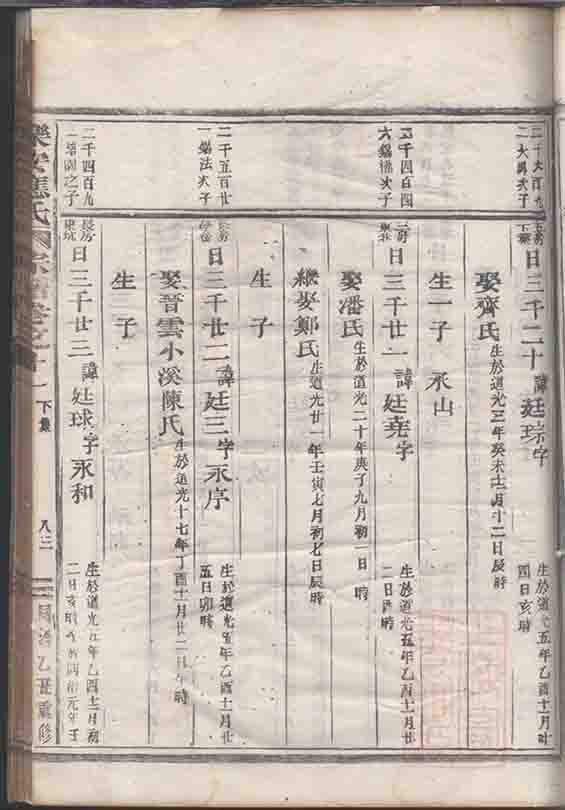 二大興次子
日三千二十諱廷琮字
生於道光五年乙酉十一月廿
四日亥時
娶齊氏生於道光三年癸未十一月十二日辰時
生一子 永山
二千四百四
六錫橋次子
日三千廿一諱廷堯字
生於道光五年乙酉十一月廿
二日酉時
娶潘氏生於道光二十年庚子九月初一日 時
繼娶鄭氏生道光廿一年壬寅七月初七日辰時
生 子
二千五百廿
一錫法次子
日三千廿二諱廷三字永序
生於道光五年乙酉十一月廿
五日卯時
娶晉雲小溪陳氏生於道光十七年丁酉十一月廿二日午時
生 子
二千四百九
之子
長房
東坑
日三千廿三諱廷球字永和
生於道光五年乙酉十二月初
二日亥時 元年壬
樂安 氏宗譜卷之十一
下集
八三
同治乙丑重修